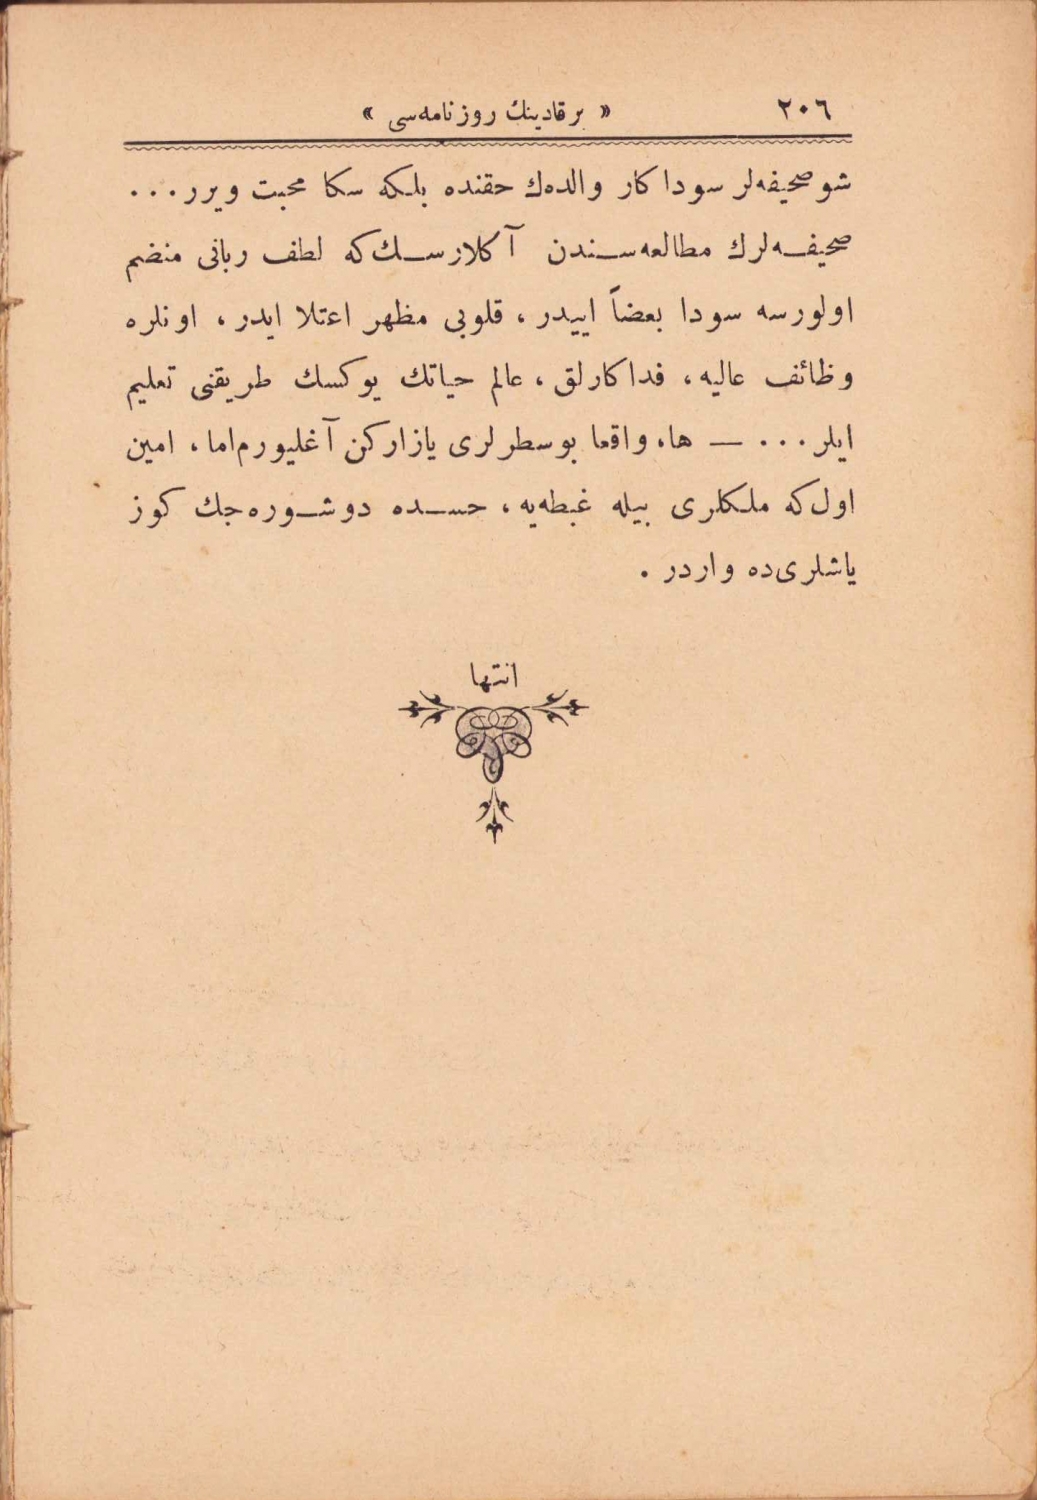 ٢٠٦ « بر قادینك روزنامه‌سی »
شو صحیفه‌لر سوداكار والده‌ك حقنده بلكه سكا محبت ویرر . . .
صحیفه‌لرك مطالعه‌سندن آكلارسك‌كه لطف ربانی منضم
اولورسه سودا بعضاً اییدر ، قلوبی مظهر اعتلا ایدر ، اونلره
وظائف عالیه ، فداكارلق ، عالم حیاتك یوكسك طریقنی تعلیم
ایلر . . . — ها ، واقعا بو سطرلری یازاركن آغلیورم اما ، امین
اول‌كه ملكلری بیله غبطه‌یه ، حسده دوشوره‌جك كوز
یاشلری‌ده واردر .
انتها